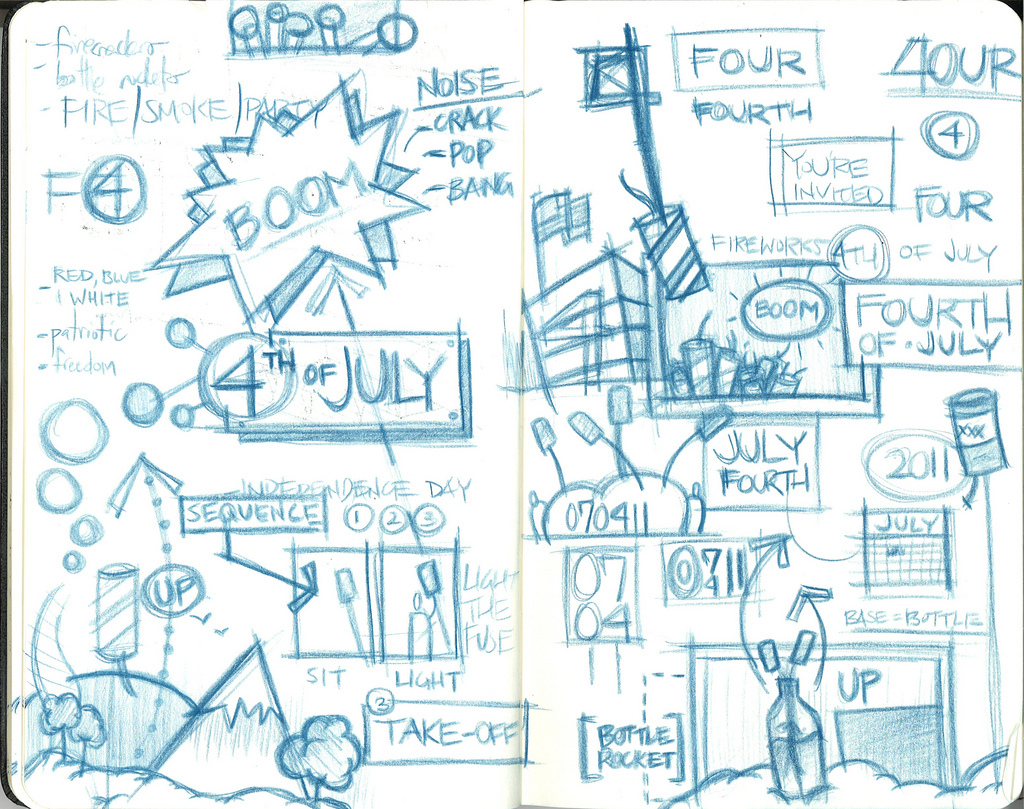 - firecrackers
- bottle rockets
- FIRE/SMOKE/PARTY
NOISE
- CRACK
- POP
- BANG
F4
BOOM
- RED, BLUE
& WHITE
- patriotic
- freedom
4TH OF JULY
INDEPENDENCE DAY
SEQUENCE
1 2 3
UP
LIGHT
THE
FUSE
SIT
LIGHT
3
TAKE-OFF
FOUR
FOURTH
4OUR
4
YOU'RE
INVITED
FOUR
FIREWORKS
4TH OF JULY
BOOM
FOURTH
OF · JULY
JULY
FOURTH
XXX
2011
070411
JULY
07
04
0711
BASE = BOTTLE
UP
[BOTTLE
ROCKET]